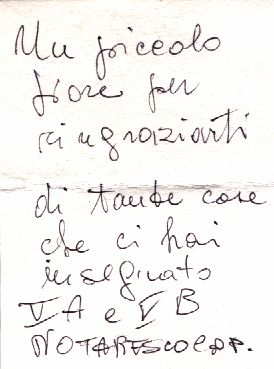 Un piccolo
fiore per
ringraziarti
di tante cose
che ci hai
insegnato
V A e V B
NOTARESCO CAP.